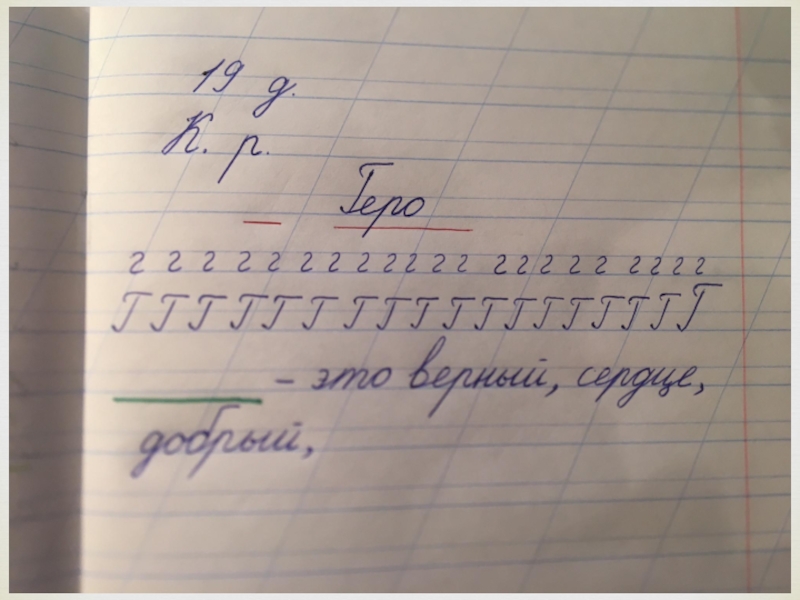 19 д.
К. р.
Геро
г г г г г г г г г г г г г г г г г г г г г
Г Г Г Г Г Г Г Г Г Г Г Г Г Г Г Г Г
— это верный, сердце,
добрый,